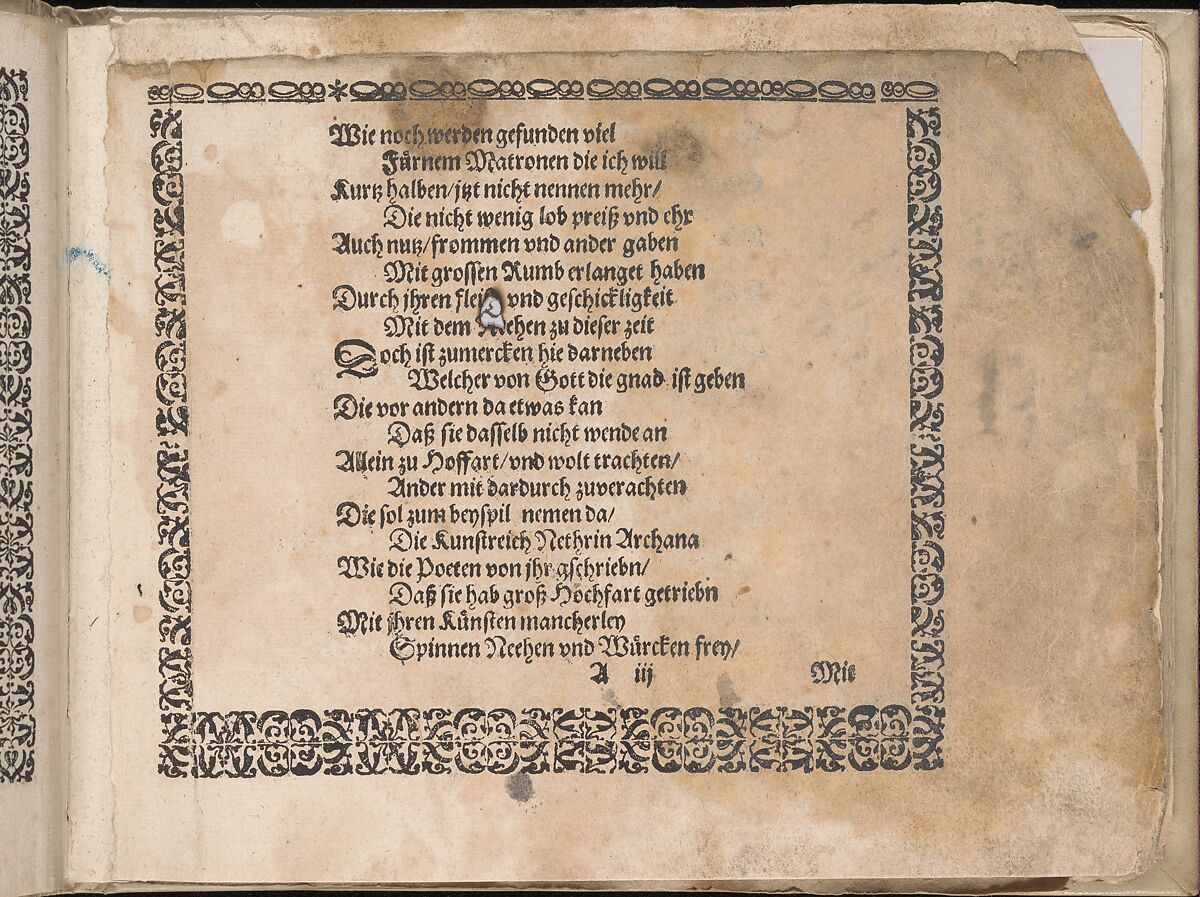 Wie noch werden gefunden viel
Fürnem Matronen die ich will
Kurtz halben/jtzt nicht nennen mehr/
Die nicht wenig lob preiß vnd ehr
Auch nutz/frommen vnd ander gaben
Mit grossen Rumb erlanget haben
Durch jhren vnd geschickligkeit
Mit dem zu dieser zeit
Doch ist zumercken hie darneben
Welcher von Gott die gnad ist geben
Die vor andern da etwas kan
Daß sie dasselb nicht wende an
Allein zu Hoffart/vnd wolt trachten/
Ander mit dardurch zuverachten
Die sol zum beyspil nemen da/
Die Kunstreich Nethrin Archana
Wie die Poeten von jhr gschriebn/
Daß sie hab groß Hochfart getriebn
Mit jhren Künsten mancherley
Spinnen Neehen vnd Würcken frey/
A iij Mit